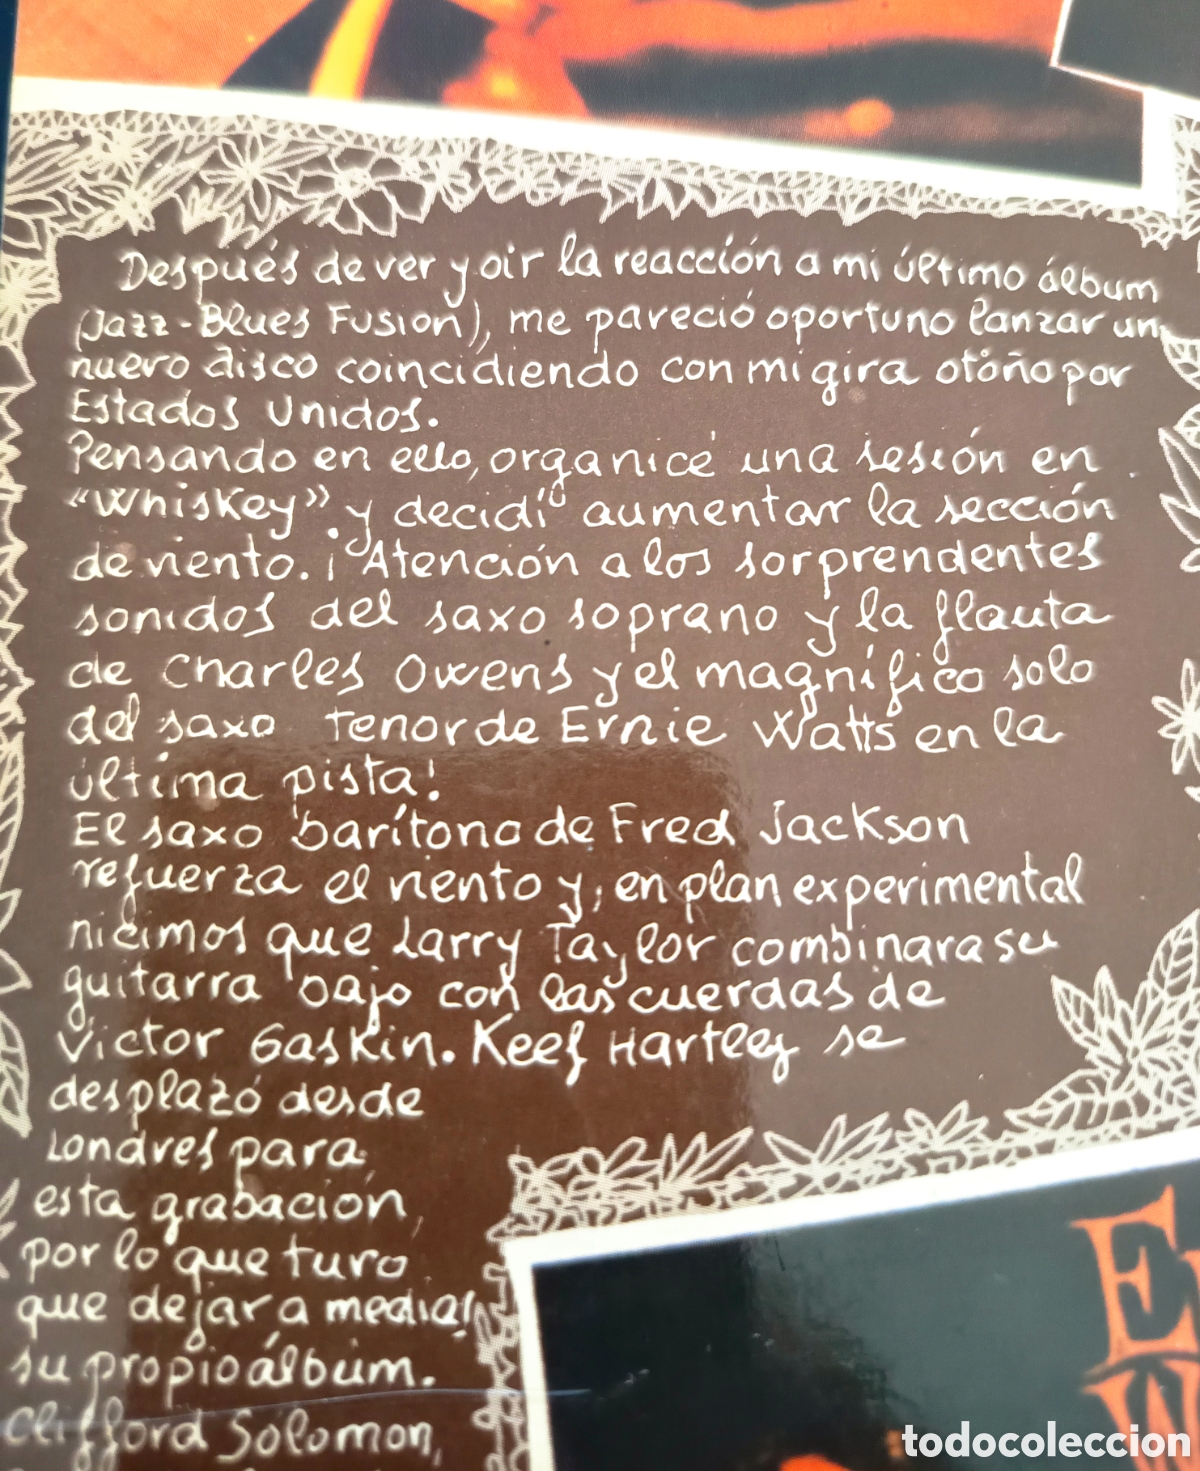 Después de ver y oir la reacción a mi último álbum
(Jazz-Blues Fusion), me pareció oportuno lanzar un
nuevo disco coincidiendo con mi gira otoño por
Estados Unidos.
Pensando en ello, organicé una sesión en
“Whiskey” y decidí aumentar la sección
de viento. ¡Atención a los sorprendentes
sonidos del saxo soprano y la flauta
de Charles Owens y el magnífico solo
del saxo tenor de Ernie Watts en la
última pista!
El saxo barítono de Fred Jackson
refuerza el viento y, en plan experimental
hicimos que Larry Taylor combinara su
guitarra bajo con las cuerdas de
Victor Gaskin. Keef Hartley se
desplazó desde
Londres para
esta grabación,
por lo que tuvo
que dejar a medias
su propio álbum.
Clifford Solomon,
E
W
todocoleccion